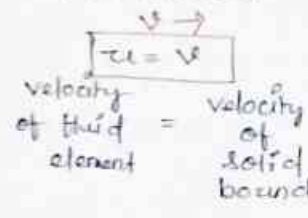 v →
u = v
velocity of fluid element = velocity of solid bound